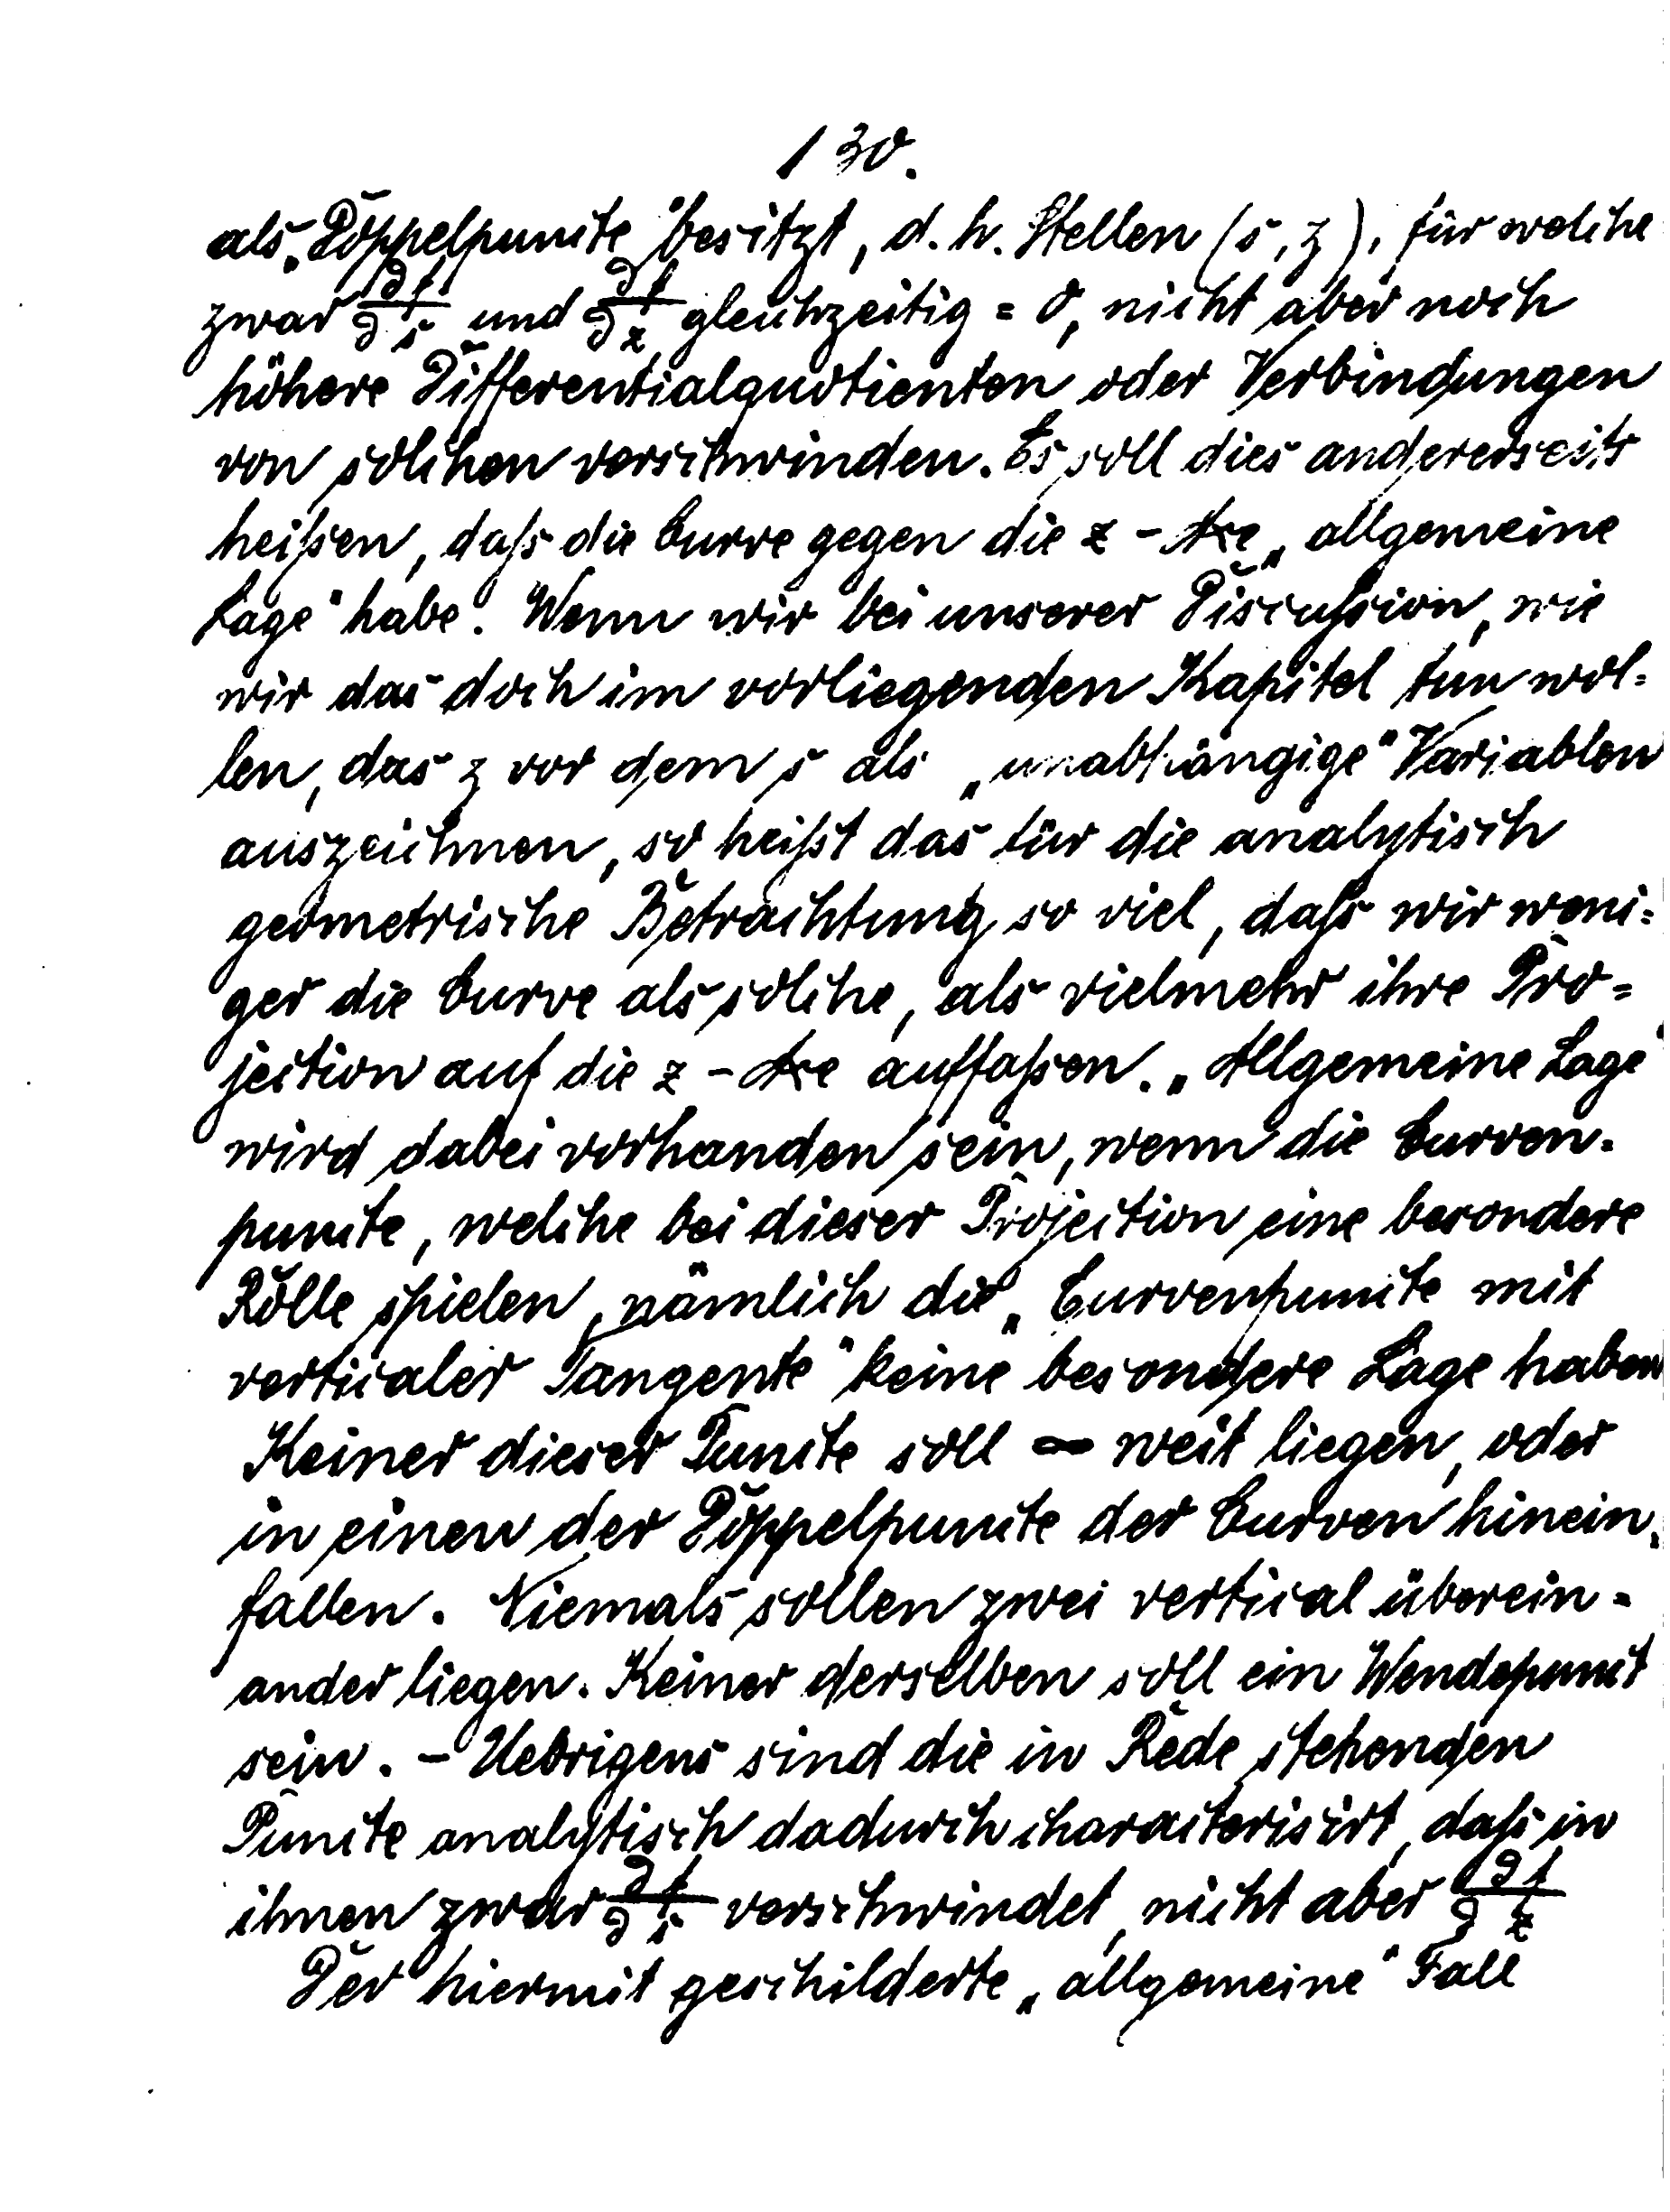 130.
als „Doppelpuncte" besitzt, d. h. Stellen (s, z), für welche
zwar ∂f/∂s und ∂f/∂z gleichzeitig = 0, nicht aber noch
höhere Differentialquotienten oder Verbindungen
von solchen verschwinden. Es soll dies andererseits
heißen, daß die Curve gegen die z-Axe „allgemeine
Lage" habe. Wenn wir bei unserer Discussion, wie
wir das doch im vorliegenden Kapitel tun wol=
len, das z vor dem s als „unabhängige" Variablen
auszeichnen, so heißt das für die analytisch
geometrische Betrachtung so viel, daß wir weni=
ger die Curve als solche, als vielmehr ihre Pro=
jection auf die z-Axe auffaßen. „Allgemeine Lage"
wird dabei vorhanden sein, wenn die Curven-
puncte, welche bei dieser Projection eine besondere
Rolle spielen, nämlich die „Curvenpuncte mit
verticaler Tangente" keine besondere Lage haben
Keiner dieser Puncte soll ∞ weit liegen, oder
in einen der Doppelpuncte der Curven hinein-
fallen. Niemals sollen zwei vertical überein=
ander liegen. Keiner derselben soll ein Wendepunct
sein. – Uebrigens sind die in Rede stehenden
Puncte analytisch dadurch characterisirt, daß in
ihnen zwar ∂f/∂s verschwindet, nicht aber ∂f/∂z
Der hiermit geschilderte „allgemeine" Fall